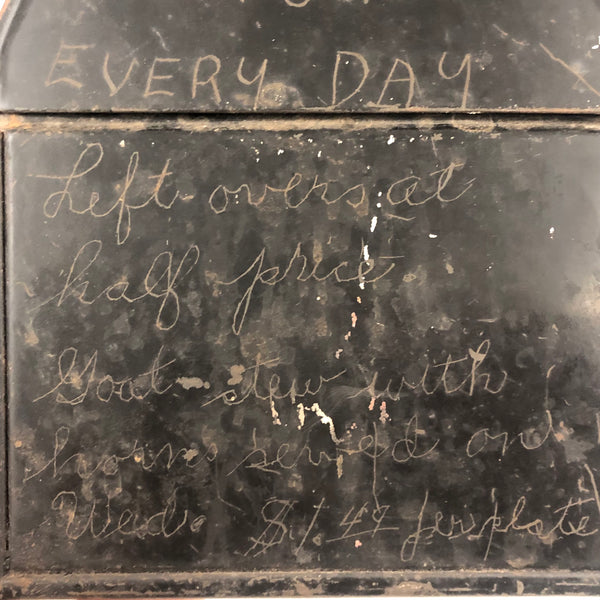 EVERY DAY
Left overs at
half price.
Goat stew with
horns served on
Wed. $1.44 per plate